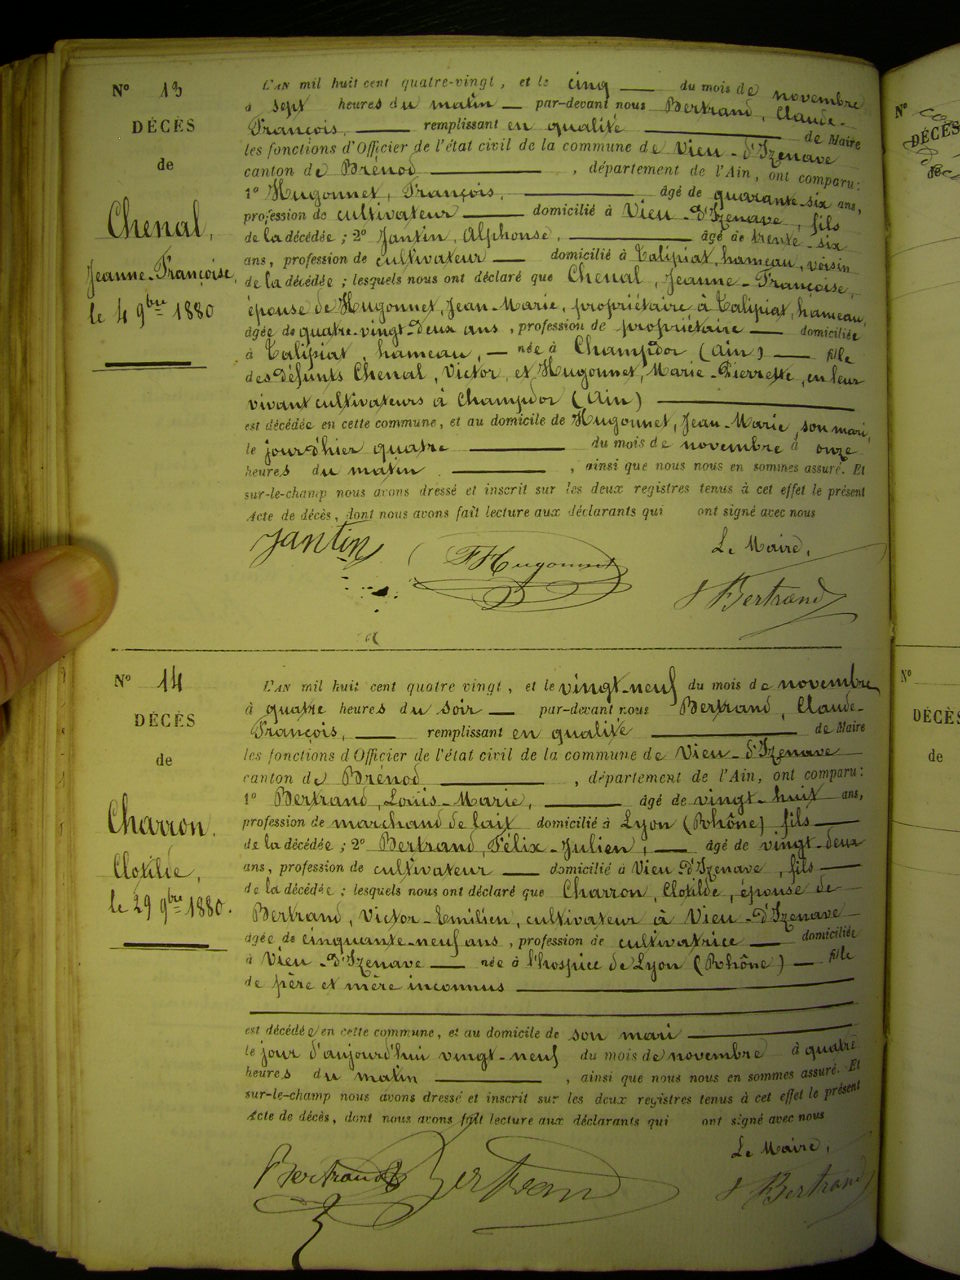 N° 13
DÉCÈS
de
Chenal,
Jeanne-Françoise,
le 4 9bre 1880
L'AN mil huit cent quatre-vingt, et le cinq du mois de novembre
à sept heures du matin par-devant nous Bertrand, Claude-
François, remplissant en qualité de Maire
les fonctions d'Officier de l'état civil de la commune de Vieu-d'Izenave
canton de Brénod, département de l'Ain, ont comparu:
1° Hugonnet, François, âgé de quarante-six ans,
profession de cultivateur domicilié à Vieu-d'Izenave, fils
de la décédée; 2° Jantin, Alphonse, âgé de trente-six
ans, profession de cultivateur domicilié à Talipiat, hameau, voisin
de la décédée; lesquels nous ont déclaré que Chenal, Jeanne-Françoise,
épouse de Hugonnet, Jean-Marie, propriétaire à Talipiat, hameau,
âgée de quatre-vingt-deux ans, profession de propriétaire domiciliée
à Talipiat, hameau, née à Champdor (Ain) fille
des défunts Chenal, Victor, et Hugonnet, Marie-Pierrette, en leur
vivant cultivateurs à Champdor (Ain)
est décédée en cette commune, et au domicile de Hugonnet, Jean-Marie, son mari,
le jour d'hier quatre du mois de novembre à onze
heures du matin, ainsi que nous nous en sommes assuré. Et
sur-le-champ nous avons dressé et inscrit sur les deux registres tenus à cet effet le présent
Acte de décès, dont nous avons fait lecture aux déclarants qui ont signé avec nous
Le Maire,
Jantin
F Hugonnet
Bertrand
N° 14
DÉCÈS
de
Charron,
Clotilde,
le 29 9bre 1880.
L'AN mil huit cent quatre vingt, et le vingt-neuf du mois de novembre
à quatre heures du soir par-devant nous Bertrand, Claude-
François, remplissant en qualité de Maire
les fonctions d'Officier de l'état civil de la commune de Vieu-d'Izenave
canton de Brénod, département de l'Ain, ont comparu:
1° Bertrand, Louis-Marie, âgé de vingt-huit ans,
profession de marchand de lait domicilié à Lyon (Rhône) fils
de la décédée; 2° Bertrand, Félix-Julien, âgé de vingt-deux
ans, profession de cultivateur domicilié à Vieu-d'Izenave, fils
de la décédée; lesquels nous ont déclaré que Charron, Clotilde, épouse de
Bertrand, Victor-Emilien, cultivateur à Vieu-d'Izenave
âgée de cinquante-neuf ans, profession de cultivatrice domiciliée
à Vieu-d'Izenave née à l'hospice de Lyon (Rhône) fille
de père et mère inconnus
est décédée en cette commune, et au domicile de son mari
le jour d'aujourd'hui vingt-neuf du mois de novembre à quatre
heures du matin, ainsi que nous nous en sommes assuré. Et
sur-le-champ nous avons dressé et inscrit sur les deux registres tenus à cet effet le présent
Acte de décès, dont nous avons fait lecture aux déclarants qui ont signé avec nous
Le Maire,
Bertrand
Bertrand
Bertrand
N°
DÉCÈS
N°
DÉCÈS
de